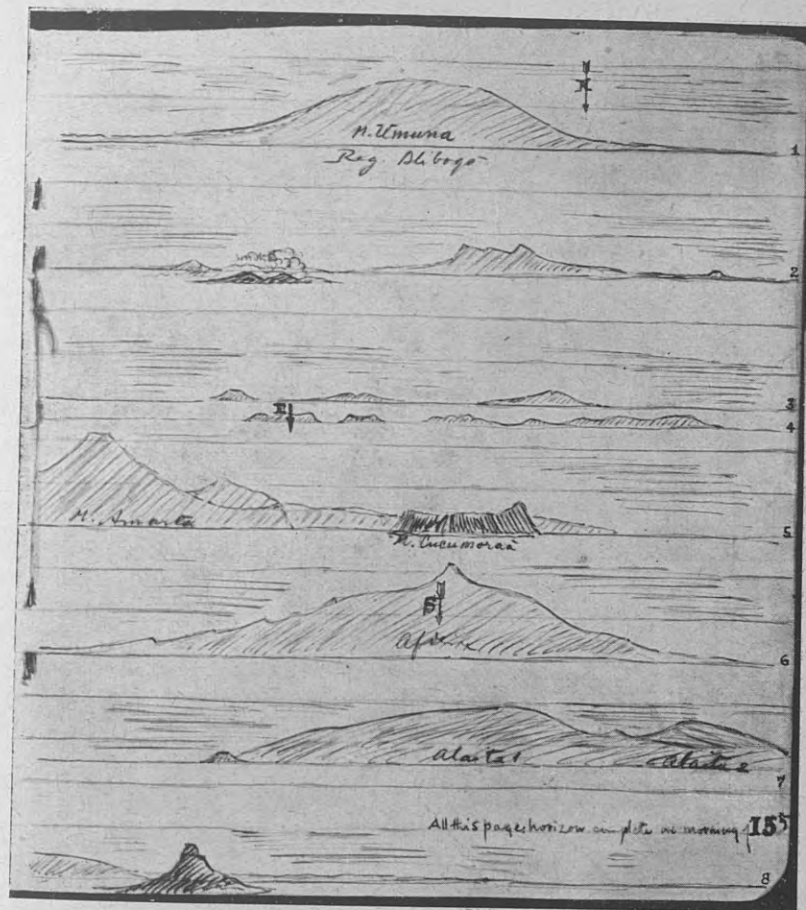 N
M. Umuna
Reg Alibogo
1
2
3
E
4
M. Amarta
5
M. Cucumoraà
S
6
Alaita 1
Alaita 2
7
All this pages horizon complete in morning of 15 5
8